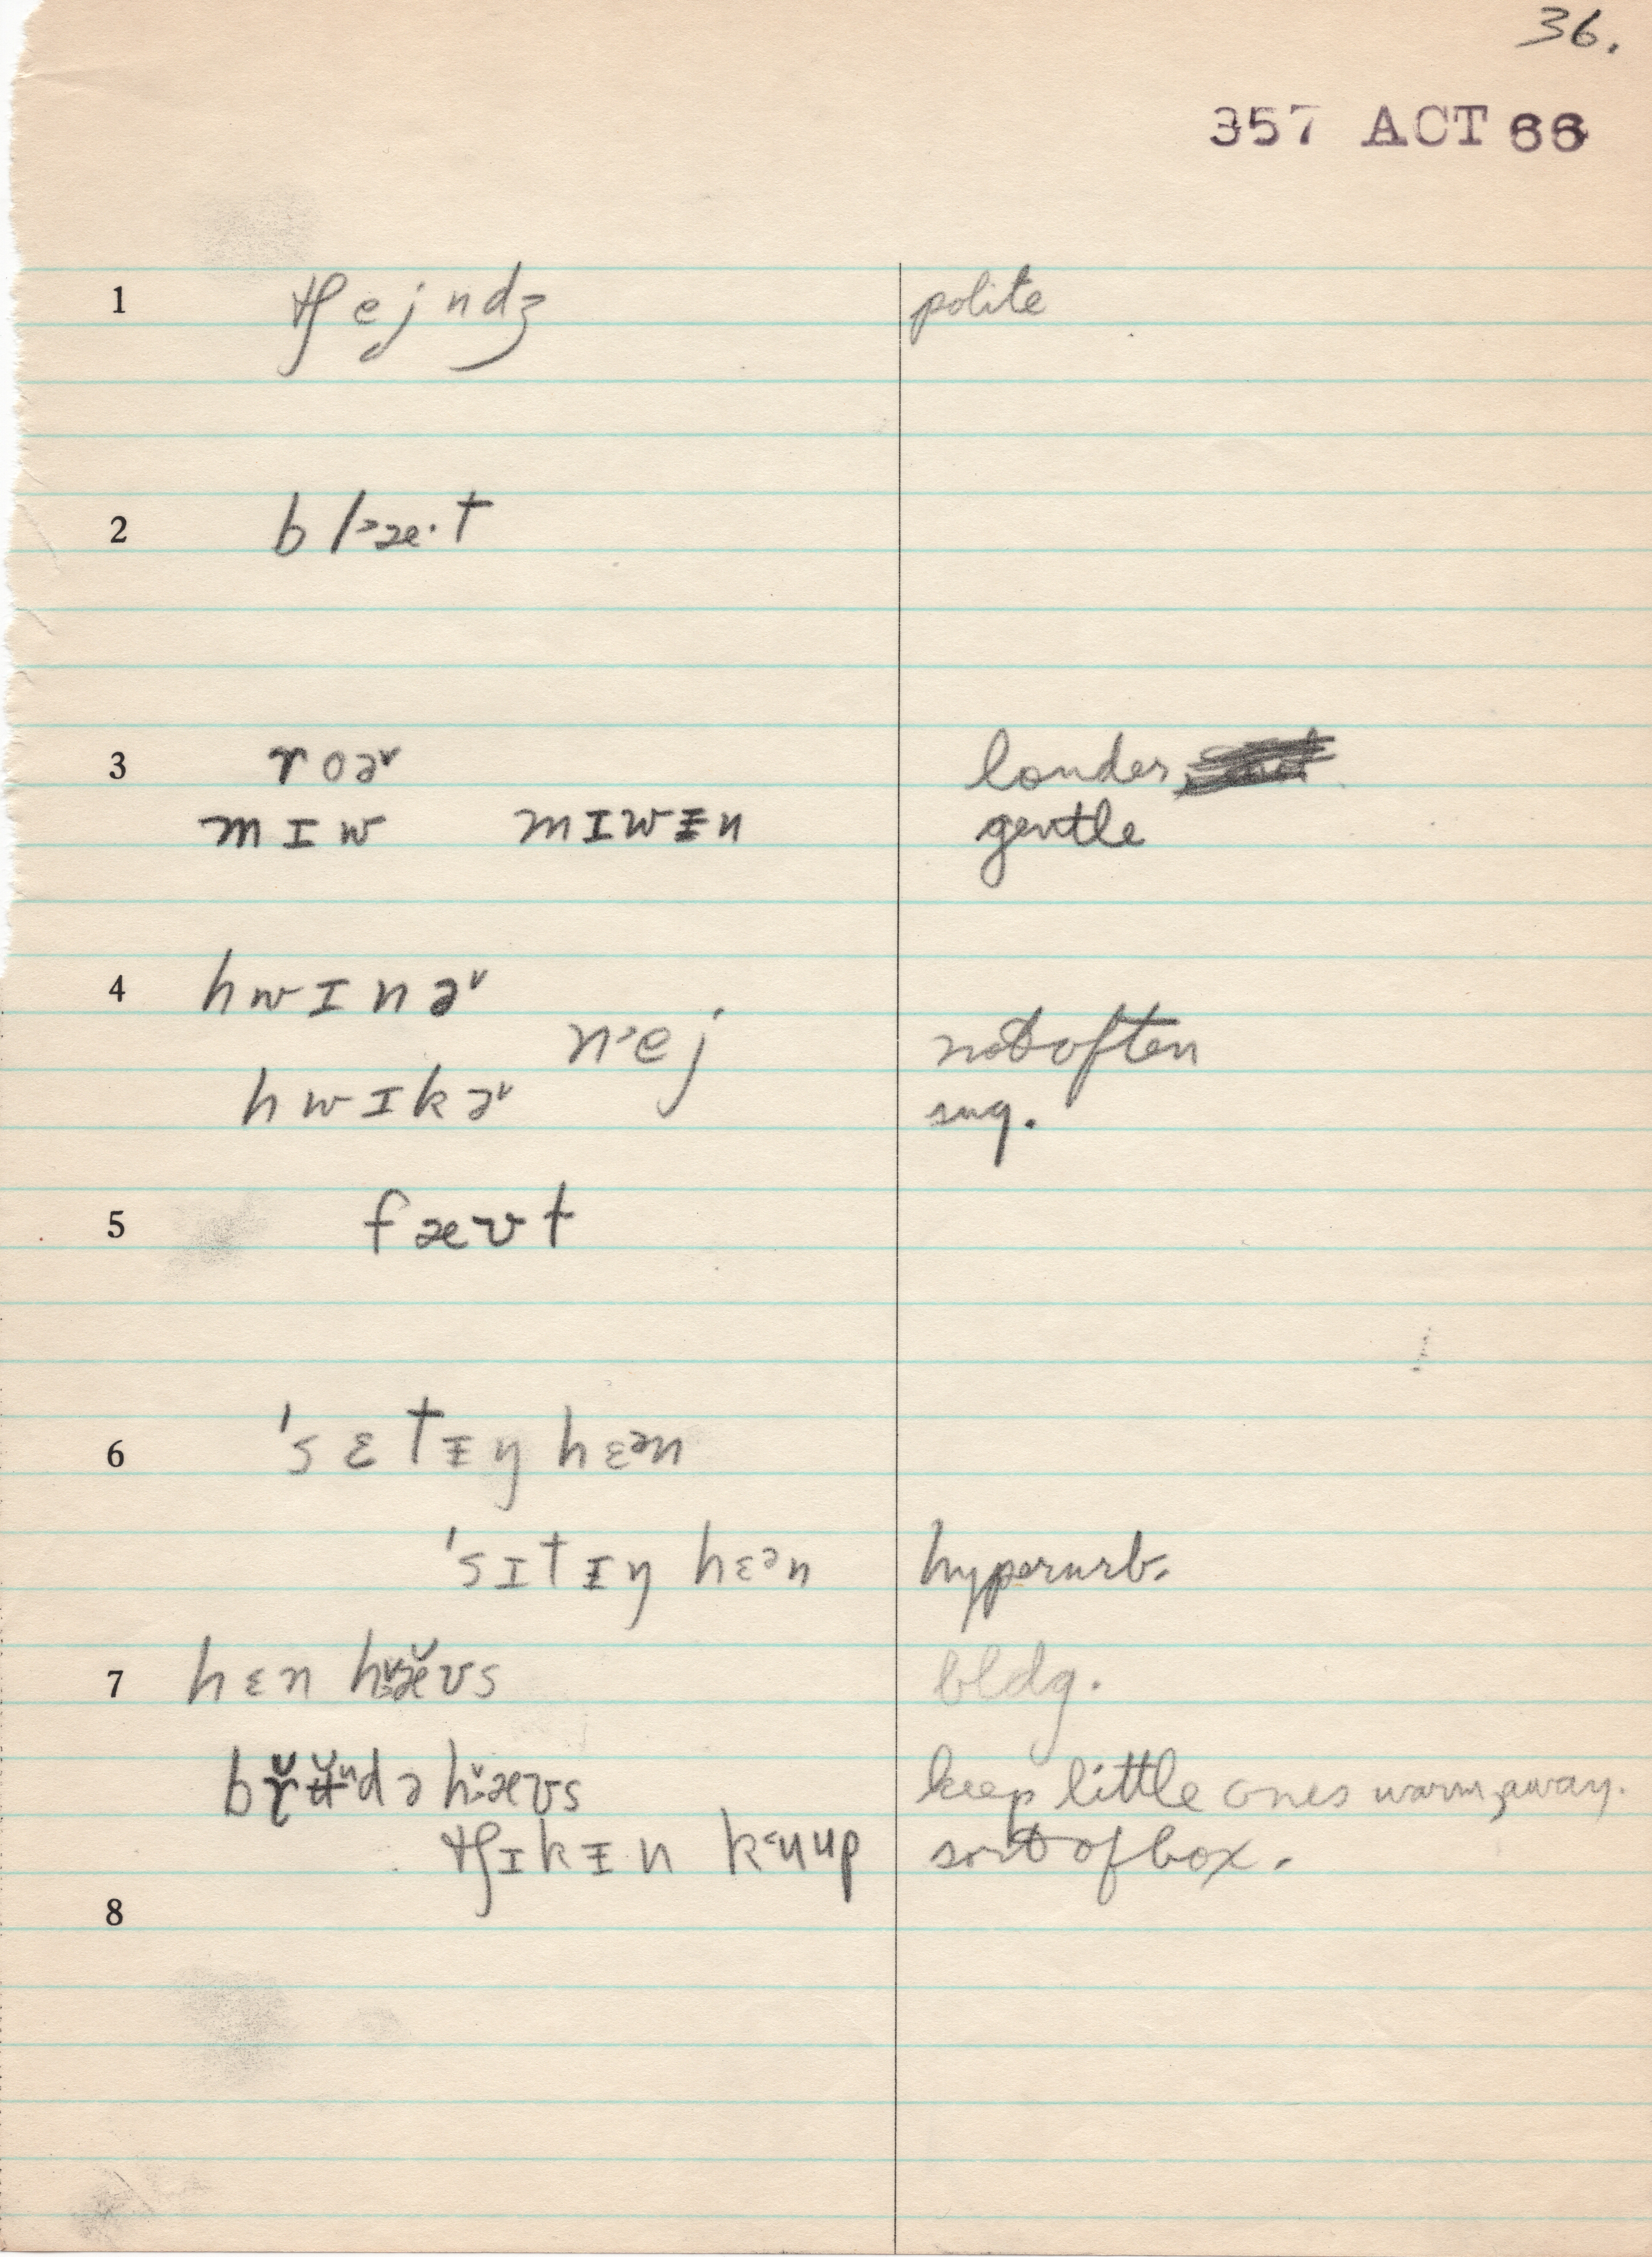 36.
357 ACT 66
1 tʃejndʒ polite
2 bl˃æ·t
3 roɚ louder
mɪw mɪwᵻn gentle
4 hwɪnɚ
n˃ej not often
hwɪkɚ sug.
5 fæʊt
6 'sɛtᵻŋ hɛən
'sɪtᵻŋ hɛən hyperurb.
7 hɛn hæ̌ʊs bldg.
keep little ones warm, away.
tʃɪkᵻn kuup sort of box.
8